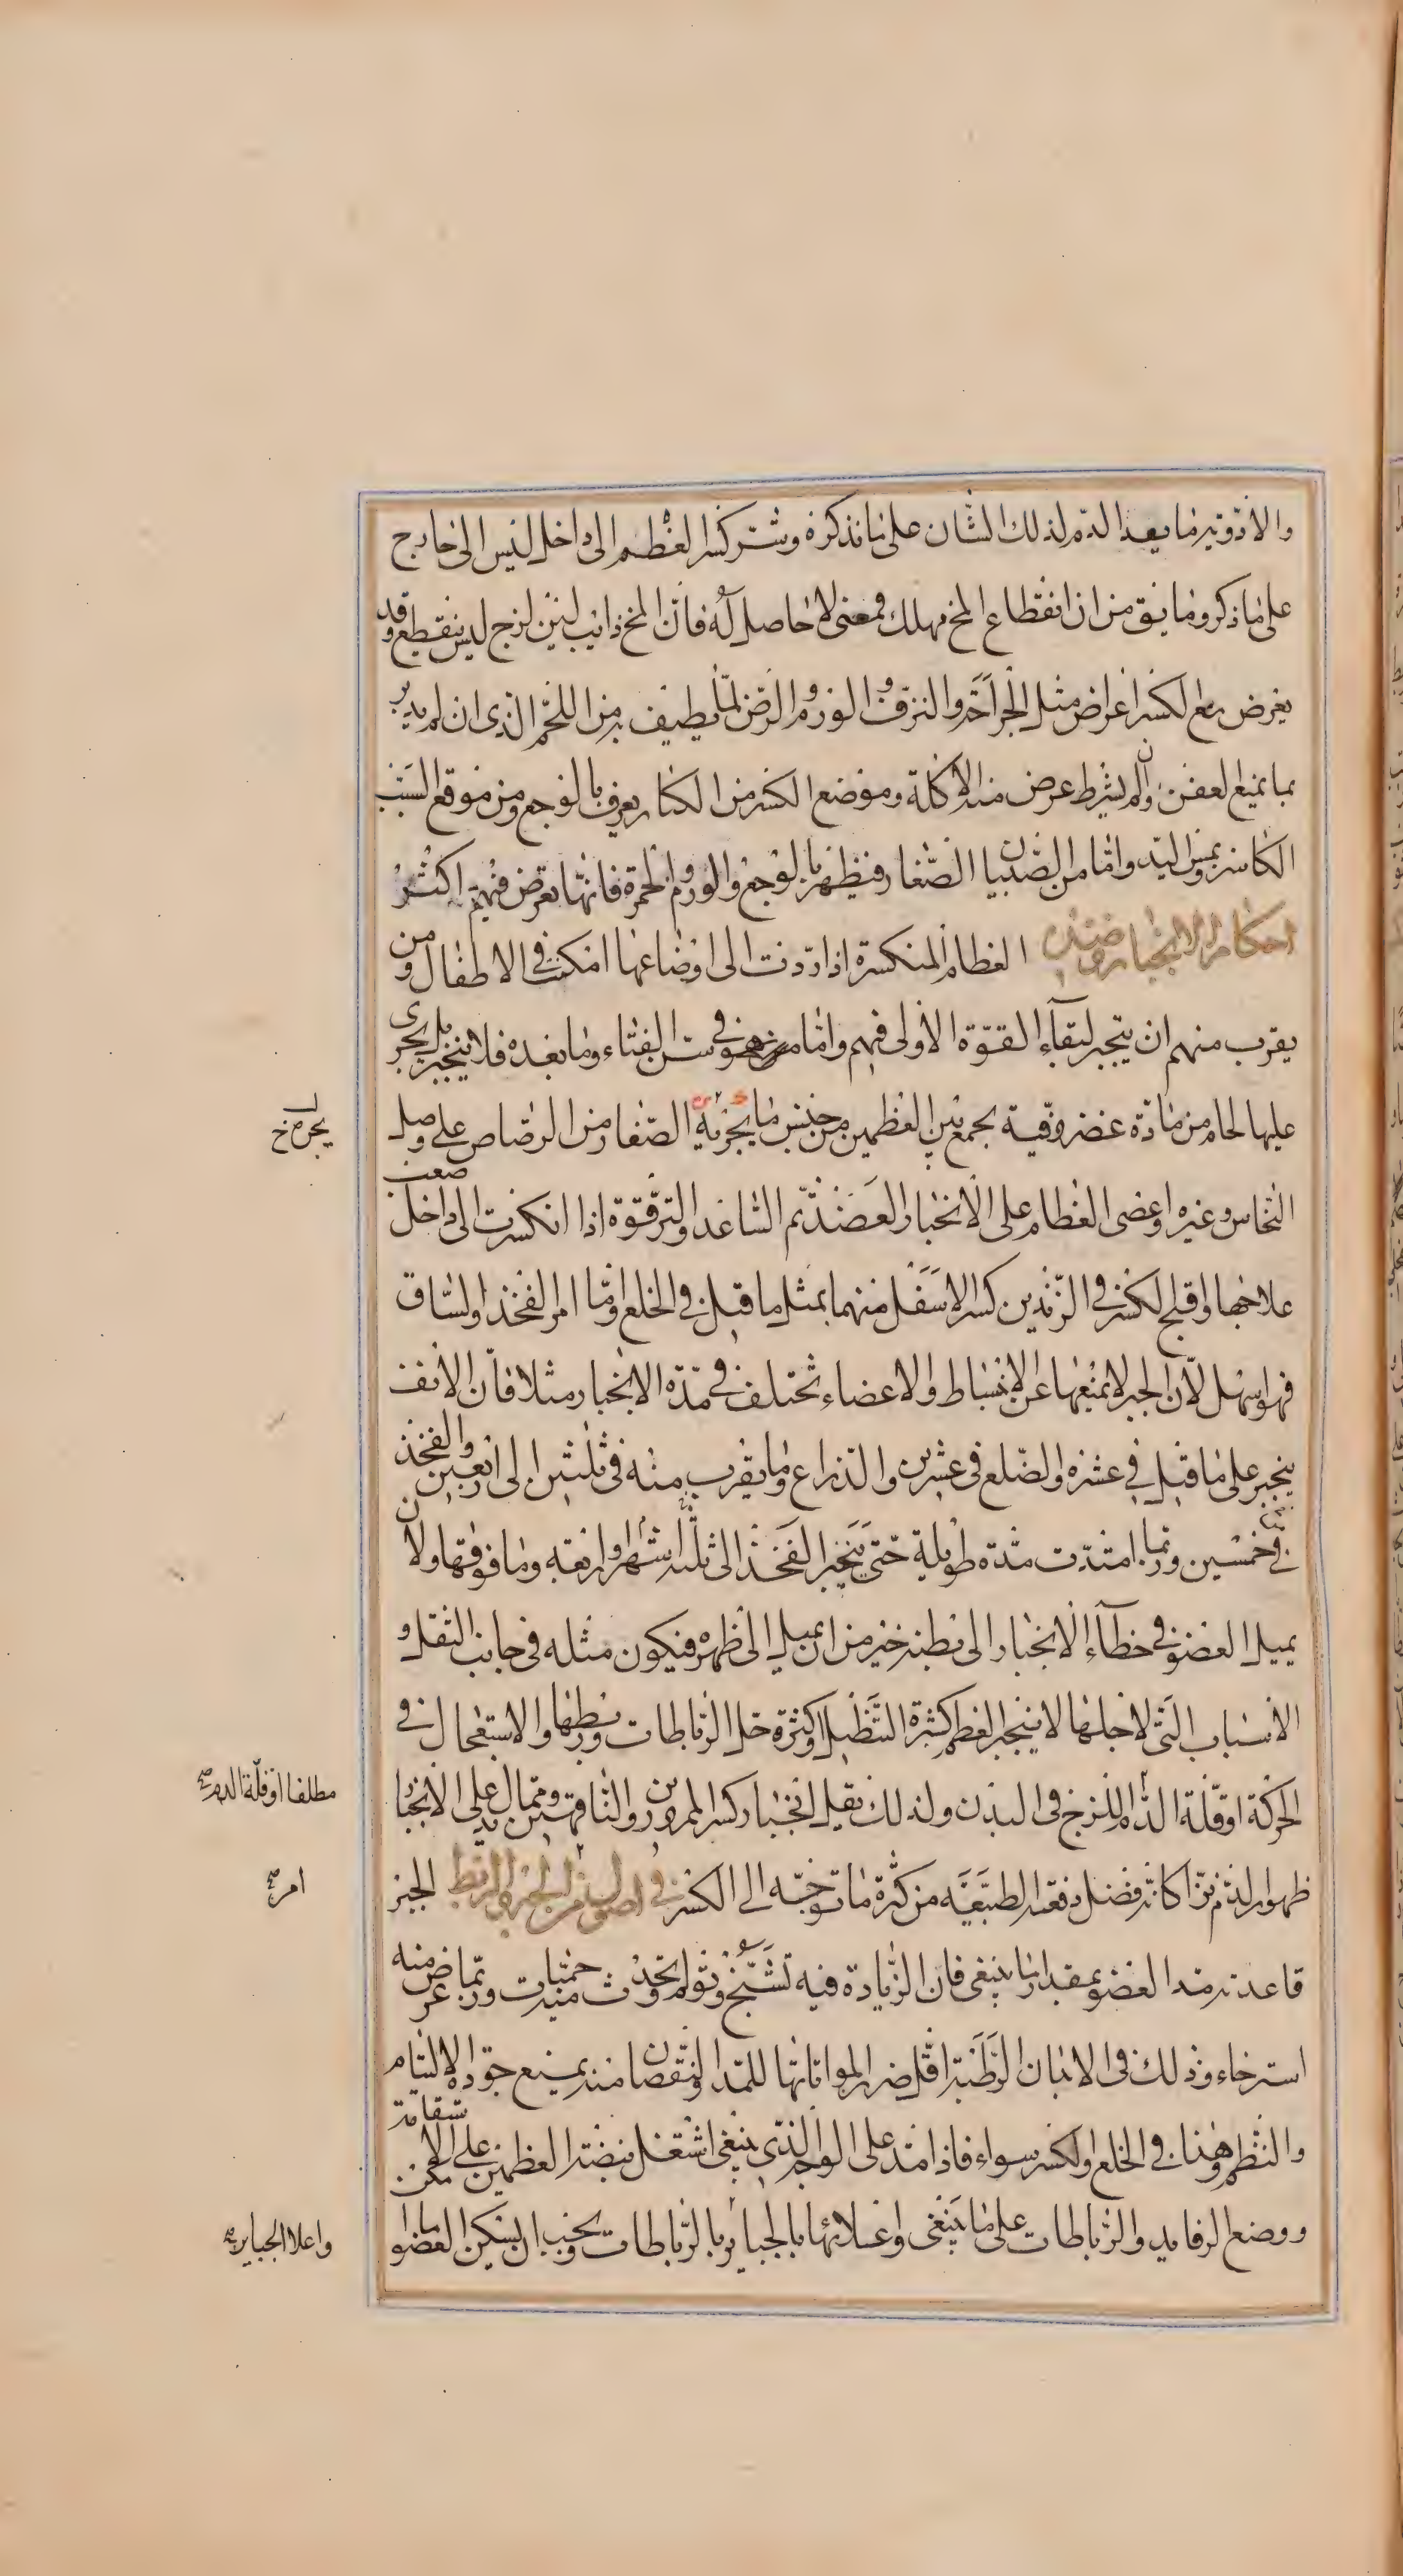 والادوية ما يعد الدم لذلك الشان على ما نذكره وشر كسر العظم الى داخل ليس الى خارج
على ما ذكر وما يق من ان انقطاع المخ مهلك فمعنى لا حاصل له فان المخ ذايب لين لزج ليس ينقطع وقد
يعرض مع الكسر اعراض مثل الجراحة والنزف والورم والرض لما يطيف به من اللحم الذى ان لم يدبر
بما يمنع العفن وان لم يشرط عرض منه الاكلة وموضع الكسر من الكبار يعرف بالوجع ومن موقع السبب
الكاسر وبمس اليد واما من الصبيان الصغار فيظهر بالوجع والورم والحمرة فانها تعرض فيهم اكثر
احكام الانجبار وضده العظام المنكسرة اذا ردت الى اوضاعها امكنت فى الاطفال ومن
يقرب منهم ان ينجبر لبقاء القوة الاولى فيهم واما من هو فى سن الفتاء وما بعده فلا ينجبر بل يجرى
عليها لحام من مادة غضروفية يجمع بين العظمين من جنس ما يجريه الصفار من الرصاص على وصل
النحاس وغيره واعصى العظام على الانجبار العضد ثم الساعد والترقوة اذا انكسرت الى داخل صعب
علاجها واقبح الكسر فى الزندين كسر الاسفل منهما بمثل ما قيل فى الخلع واما امر الفخذ والساق
فهو اسهل لان الجبر لا يمنعها عن الانبساط والاعضاء تختلف فى مدة الانجبار مثلا فان الانف
ينجبر على ما قيل فى عشرة والضلع فى عشرين والذراع وما يقرب منه فى ثلثين الى اربعين والفخذ
فى خمسين وربما امتدت مدة طويلة حتى ينجبر الفخذ الى ثلثة اشهر واربعة وما فوقها ولان
يميل العضو فى خطآء الانجبار الى بطنه خير من ان يميل الى ظهره فيكون مثله فى جانب الثقل و
الاسباب التى لاجلها لا ينجبر العظم كثرة التنطيل او كثرة حل الرباطات وربطها والاستعجال فى
الحركة او قلة الدم اللزج فى البدن ولذلك يقل انجبار كسر الممرورين والناقهين ومما يدل على الانجبا
ظهور الدم نزا كانه فضل دفعته الطبيعية من كثرة ما توجه الى الكسر فى اصول من الجبر والربط الجبر
قاعدته مد العضو بمقدار ما ينبغى فان الزيادة فيه تشنج وتولم وتحدث حميات وربما عرض منه
استرخاء وذلك فى الابدان الرطبة اقل ضررا لمواتاتها للمد والنقصان منه يمنع جودة الالتيام
والنظم وهذا فى الخلع والكسر سواء فاذا مد على الوجه الذى ينبغى اشتغل بنصبة العظمين على الاستقامة
ووضع الرفايد والرباطات على ما ينبغى واعلائها بالجبائر بالرباطات ويجب ان يسكن العضو ما ا
مكن
يجره خ
مطلقا او قلة الدم صح
امر صح
واعلا الجبايره